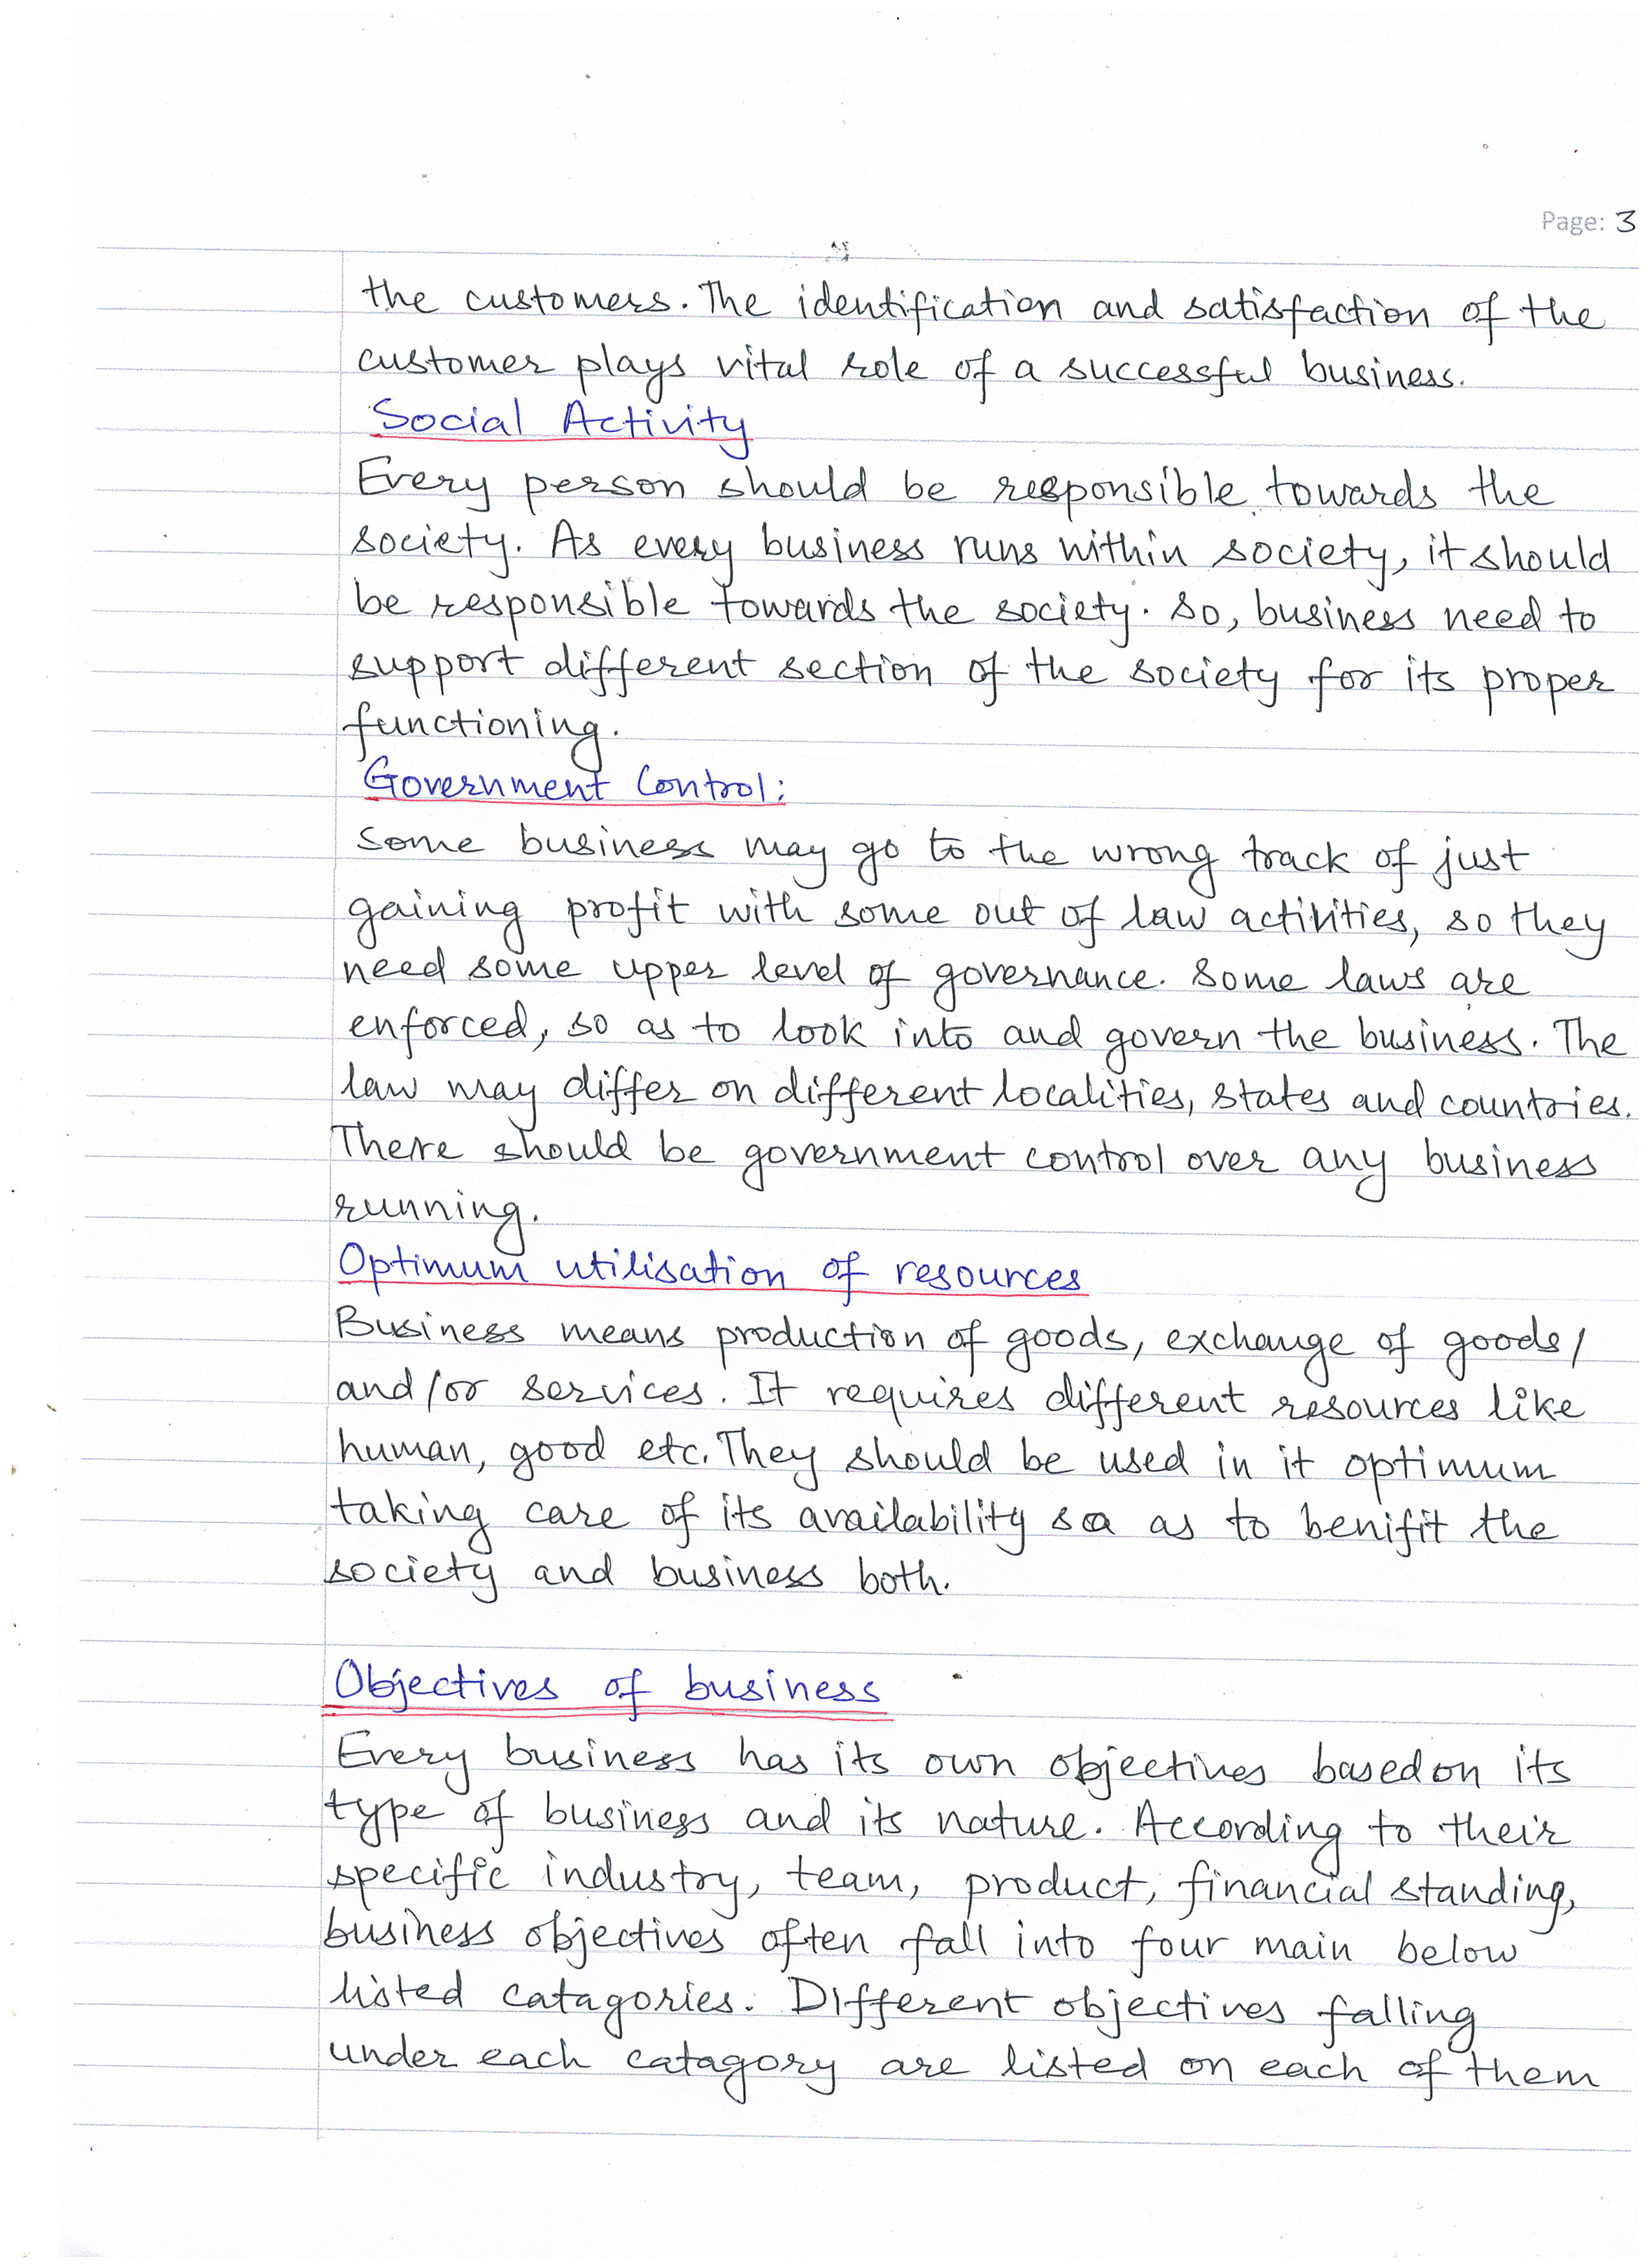 Page: 3
the customers. The identification and satisfaction of the
customer plays vital role of a successful business.
Social Activity
Every person should be responsible towards the
society. As every business runs within society, it should
be responsible towards the society. So, business need to
support different section of the society for its proper
functioning.
Government Control:
Some business may go to the wrong track of just
gaining profit with some out of law activities, so they
need some upper level of governance. Some laws are
enforced, so as to look into and govern the business. The
law may differ on different localities, states and countries.
There should be government control over any business
running.
Optimum utilisation of resources
Business means production of goods, exchange of goods/
and/or services. It requires different resources like
human, good etc. They should be used in it optimum
taking care of its availability so as to benifit the
society and business both.
Objectives of business
Every business has its own objectives based on its
type of business and its nature. According to their
specific industry, team, product, financial standing,
business objectives often fall into four main below
listed catagories. Different objectives falling
under each catagory are listed on each of them